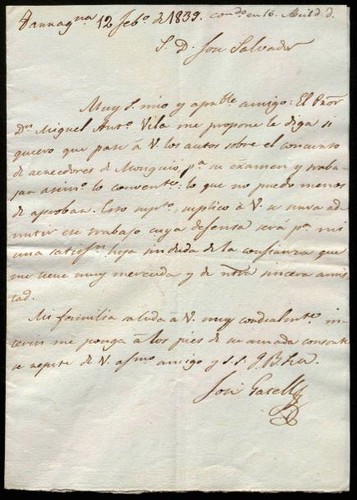 12 Feb.o de 1839.
S. D. José Salvador
Muy S. mio y apble amigo: El
Dn Miguel Ant.o Vila me propone le diga si
quiero que pase á V. los autos sobre el concurso
de acreedores de Monguió pa su examen y traba
jar asimo lo convente, lo que no puedo menos
de aprobar. Esto supto, suplico á V. se sirva ad
mitir un trabajo cuya defensa será pa mi
una satisfn hija sin duda de la confianza que
me tiene muy merecida y de ntra sincera amis
tad.
Mi familia saluda á V. muy cordialmte, in
me ponga á los pies de su amada consorte
se repite de V. afmo amigo y S. S. Q. B. S. M.
José